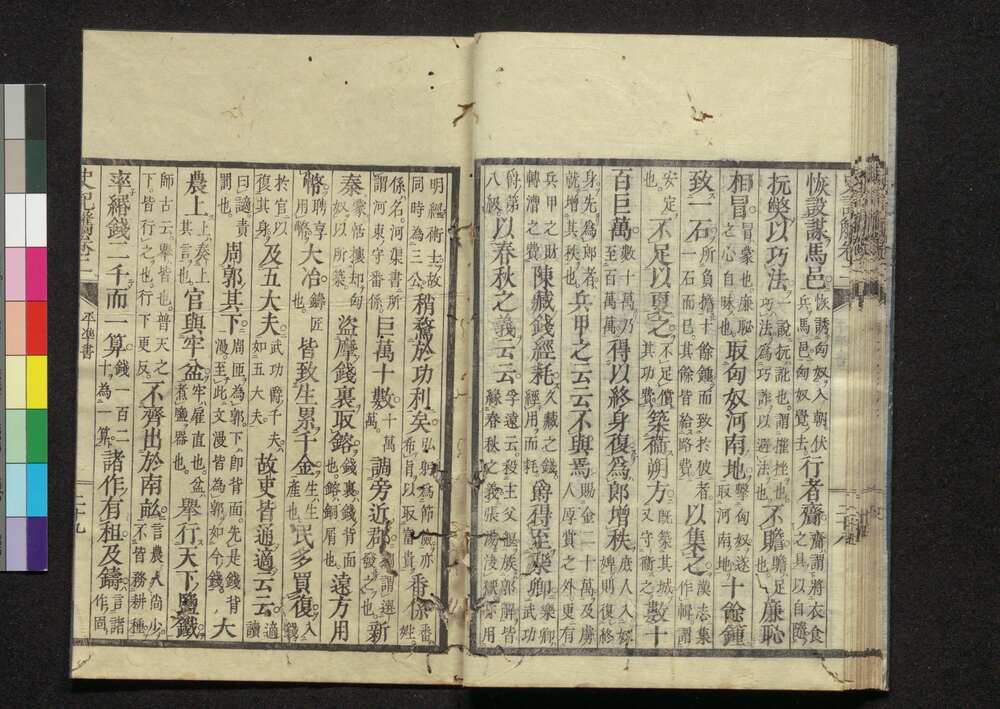 恢設謀馬邑恢誘匈奴入朝伏兵馬邑匈奴覺去行者齎齎謂將衣食之具以自隨
抏獘以巧法一說抏訛也謂摧挫也巧法為巧詐以避法也不贍贍足也廉恥
相冒冒蒙也廉恥之心自昧也取匈奴河南地擊匈奴遂取河南地十餘鍾
致一石所負擔十餘鍾而致於彼者一石而已其餘皆給路費以集之漢志集作輯謂
安定也不足以更之不足償其功費築衞朔方既築其城又守衞之數十
百巨萬數十萬乃至百百萬得以終身復為郎增秩庶人入奴婢則復終
身先為郎者就增其秩也兵甲之云云不與焉賜金二十萬及虜人原賞之外更有
兵甲之財轉漕之費陳藏錢經耗久藏之錢經用而耗爵得至樂卿樂卿武功
爵第八級以春秋之義云云孚遠云殺主父偃族郭解皆緣春秋之義張湯決獄亦用
明經術士故同時為三公稍騖於功利矣弘躬為節儉亦希旨以取富貴番係番姓
係名河渠書所謂河東守番係巨萬十數十千萬萬調旁近郡調謂選發之也新
秦蒙恬攘却匈奴以所築盜摩錢裏取鎔錢裏錢背面也鎔銅屑也遠方用
幣聘享用幣大冶鑄匠也皆致生累千金生生產也民多買復入錢
於官以復其身及五大夫武功爵千夫如五大夫故吏皆通適云云適讀
曰謫責罰也周郭其下周匝為郭下即背面先是錢背漫至此文漫皆為郭如今錢大
農上奏上其言也官與牢盆牢雇直也盆煮鹽器也舉行天下鹽鐵
師古云舉皆也普天之下皆行之也行下更反不齊出於南畝言農人尚少不皆務耕種
率緡錢二千而一算錢一百二十為一算諸作有租及鑄言諸作固
史記觿卷之二 平準書 二十九